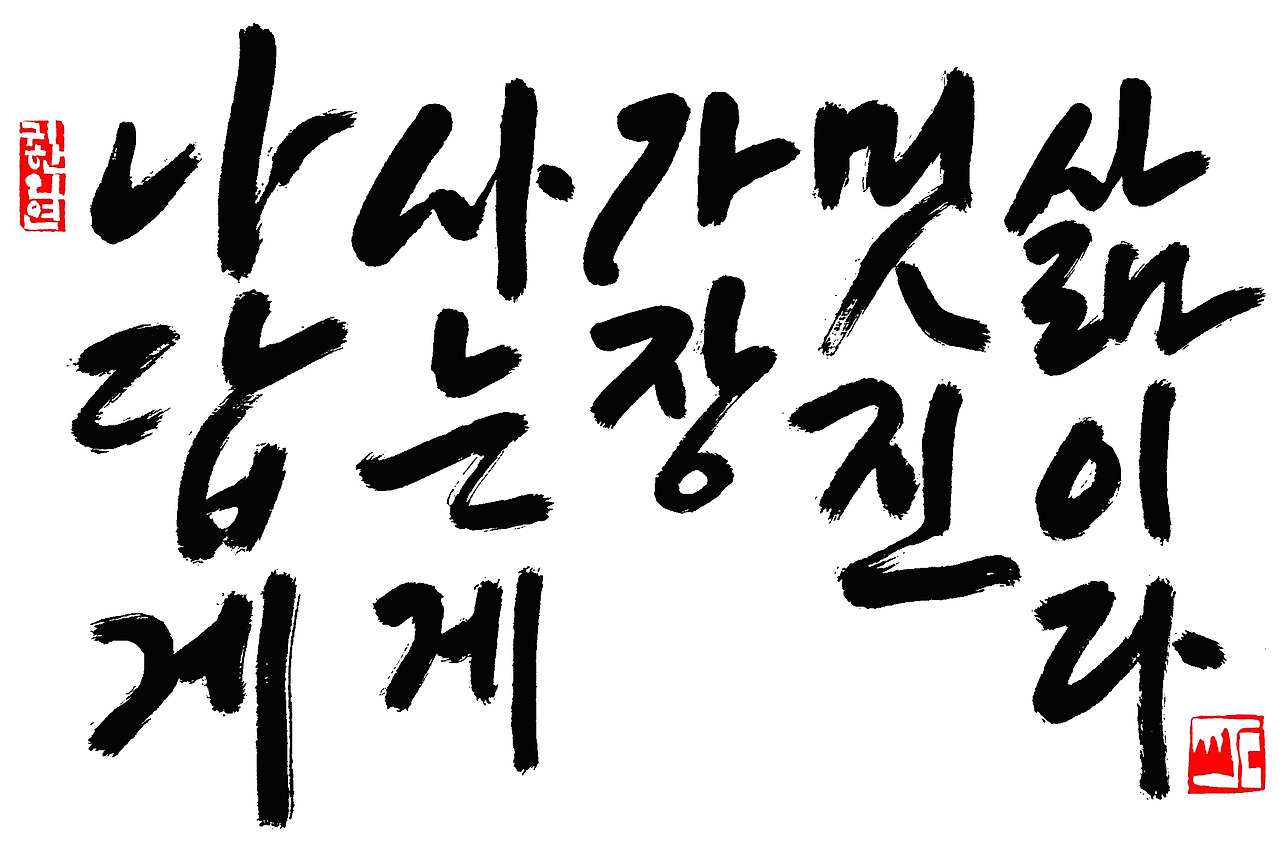 나답게
사는게
가장
멋진
삶이다